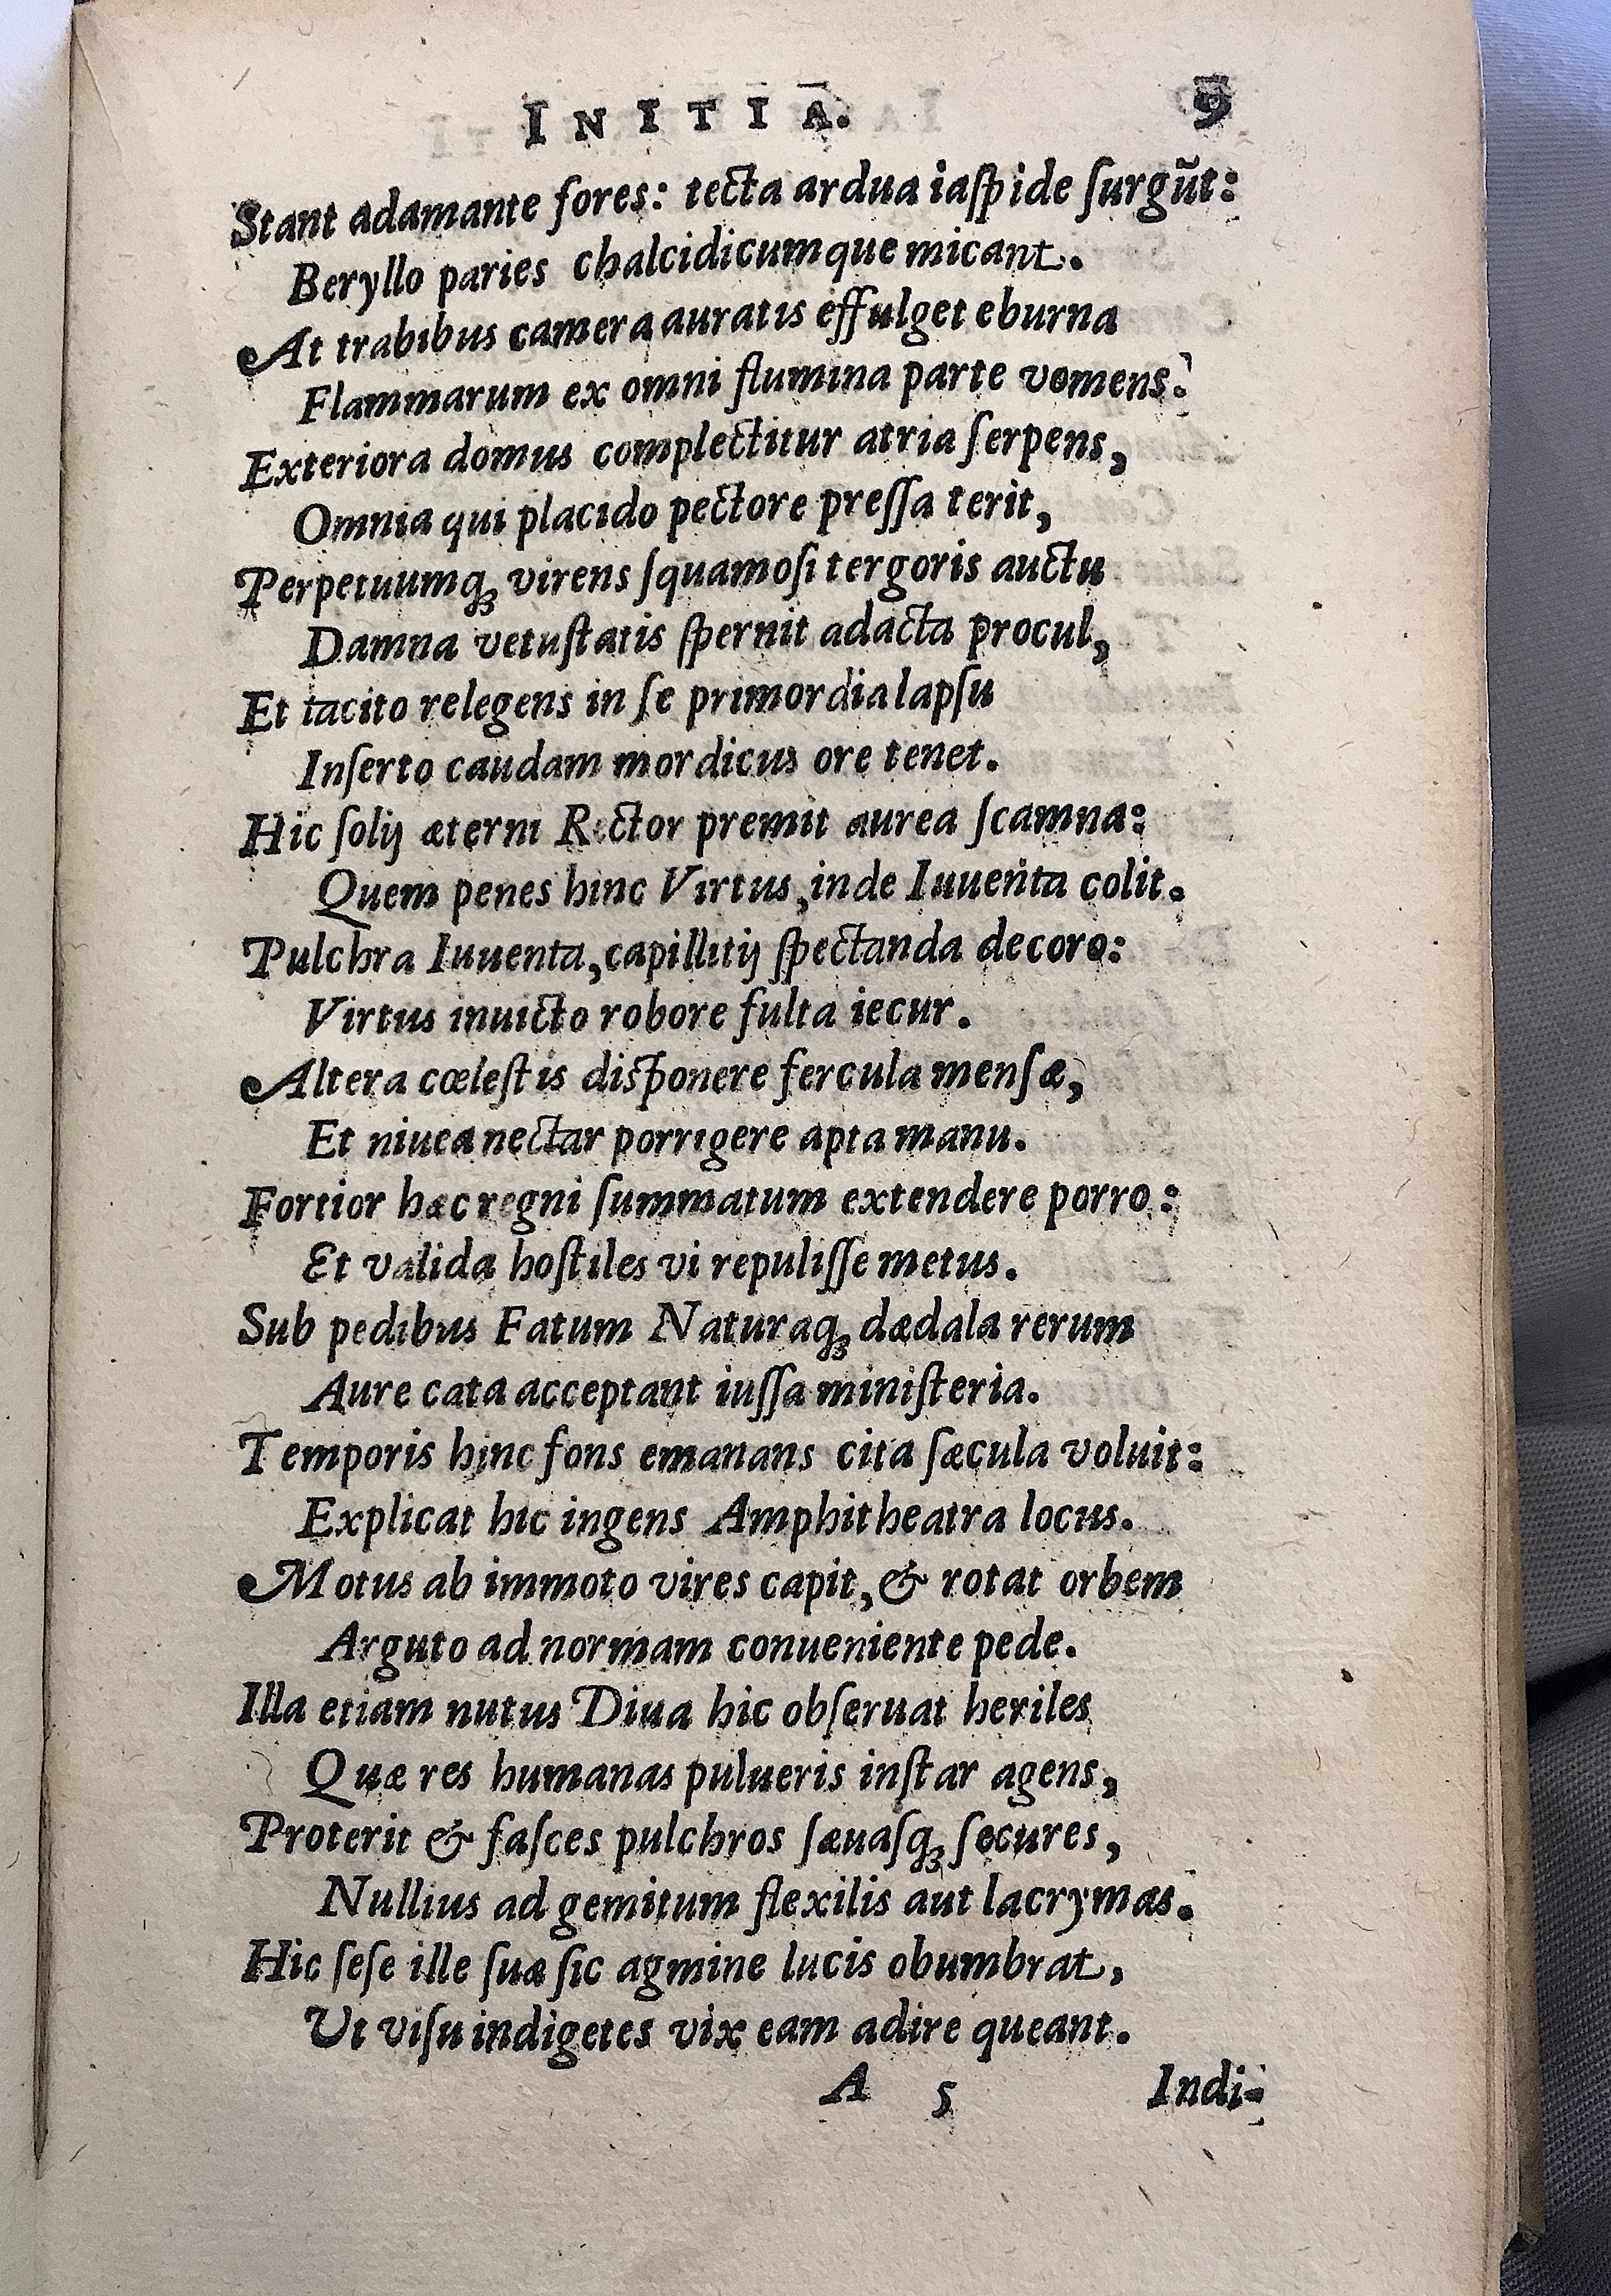 INITIA. 9
Stant adamante fores: tecta ardua iaſpide ſurgũt:
Beryllo paries chalcidicumque micant.
At trabibus camera auratis effulget eburna
Flammarum ex omni flumina parte vomens.
Exteriora domus complectitur atria ſerpens,
Omnia qui placido pectore preſſa terit,
Perpetuumqꝫ virens ſquamoſi tergoris auctu
Damna vetuſtatis ſpernit adacta procul,
Et tacito relegens in ſe primordia lapſu
Inſerto caudam mordicus ore tenet.
Hic ſolij æterni Rector premit aurea ſcamna:
Quem penes hinc Virtus, inde Iuuenta colit.
Pulchra Iuuenta, capillitij ſpectanda decoro:
Virtus inuicto robore fulta iecur.
Altera cœleſtis disponere fercula menſæ,
Et niuea nectar porrigere apta manu.
Fortior hæc regni ſummatum extendere porro:
Et valida hoſtiles vi repuliſſe metus.
Sub pedibus Fatum Naturaqꝫ dædala rerum
Aure cata acceptant iuſſa miniſteria.
Temporis hinc fons emanans cita ſæcula voluit:
Explicat hic ingens Amphitheatra locus.
Motus ab immoto vires capit, & rotat orbem
Arguto ad normam conueniente pede.
Illa etiam nutus Diua hic obſeruat heriles
Quæ res humanas pulueris inſtar agens,
Proterit & faſces pulchros ſæuaſqꝫ ſecures,
Nullius ad gemitum flexilis aut lacrymas.
Hic ſeſe ille ſuæ ſic agmine lucis obumbrat,
Ut viſu indigetes vix eam adire queant.
A 5 Indi-